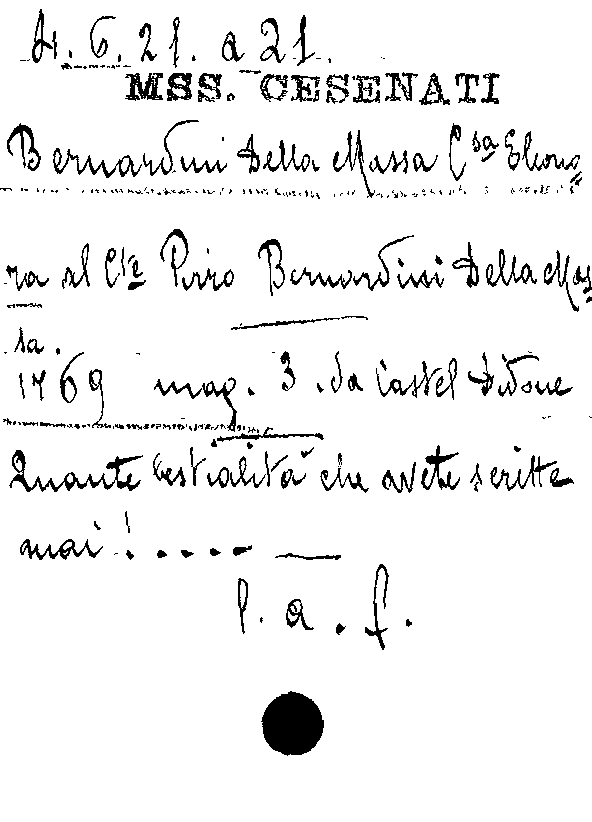 4. 6. 21. a 21.
MSS. CESENATI
Bernardini Della Massa C.sa Eleono=
ra al C.te Pirro Bernardini Della Mas=
sa.
1769 mag. 3. da Castel Didone
Quante bestialità che avete scritte
mai! .....—
l. a. f.